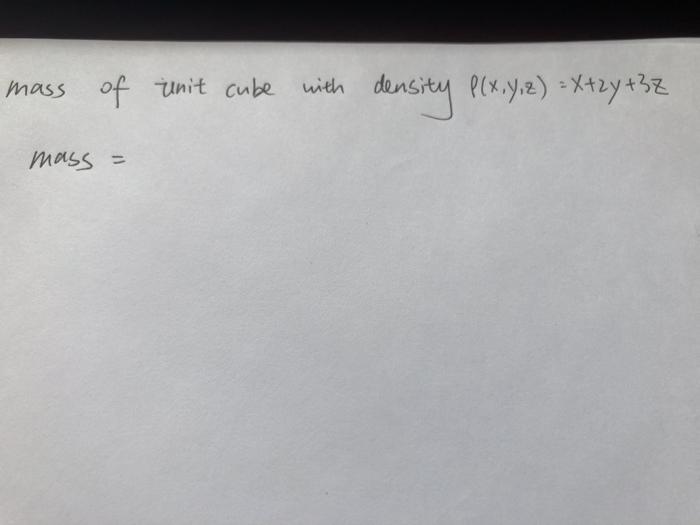 mass of unit cube with density ρ(x,y,z) = x+2y+3z
mass =